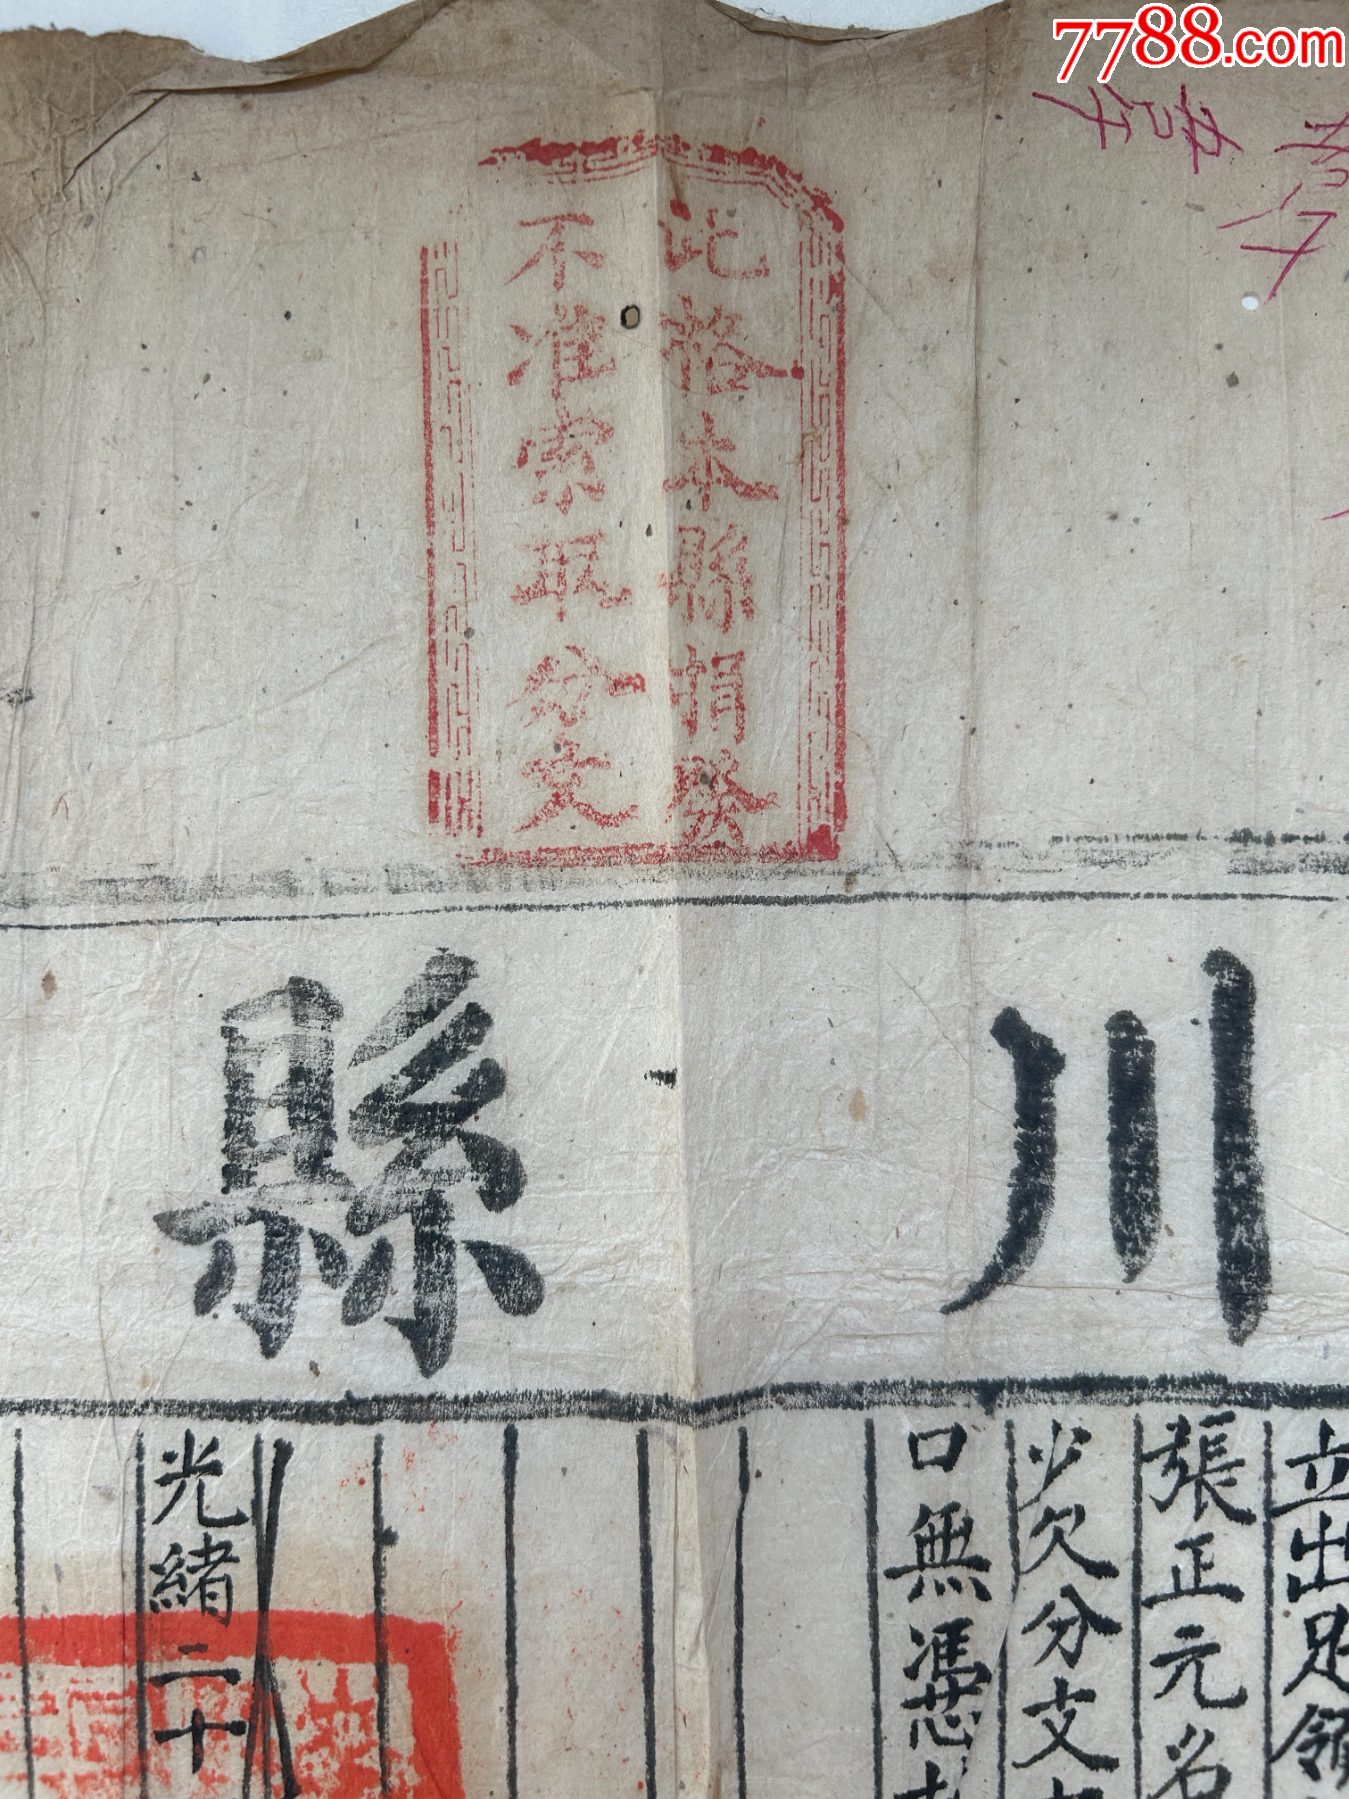 7788.com
此格本縣捐發
不准索取分文
川縣
立出足領
張正元名
少欠分文
口無憑
光緒二十